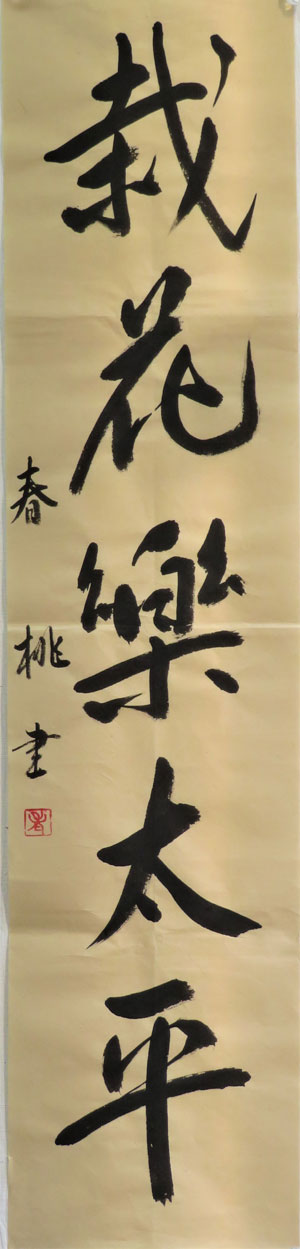 栽花樂太平
春桃書